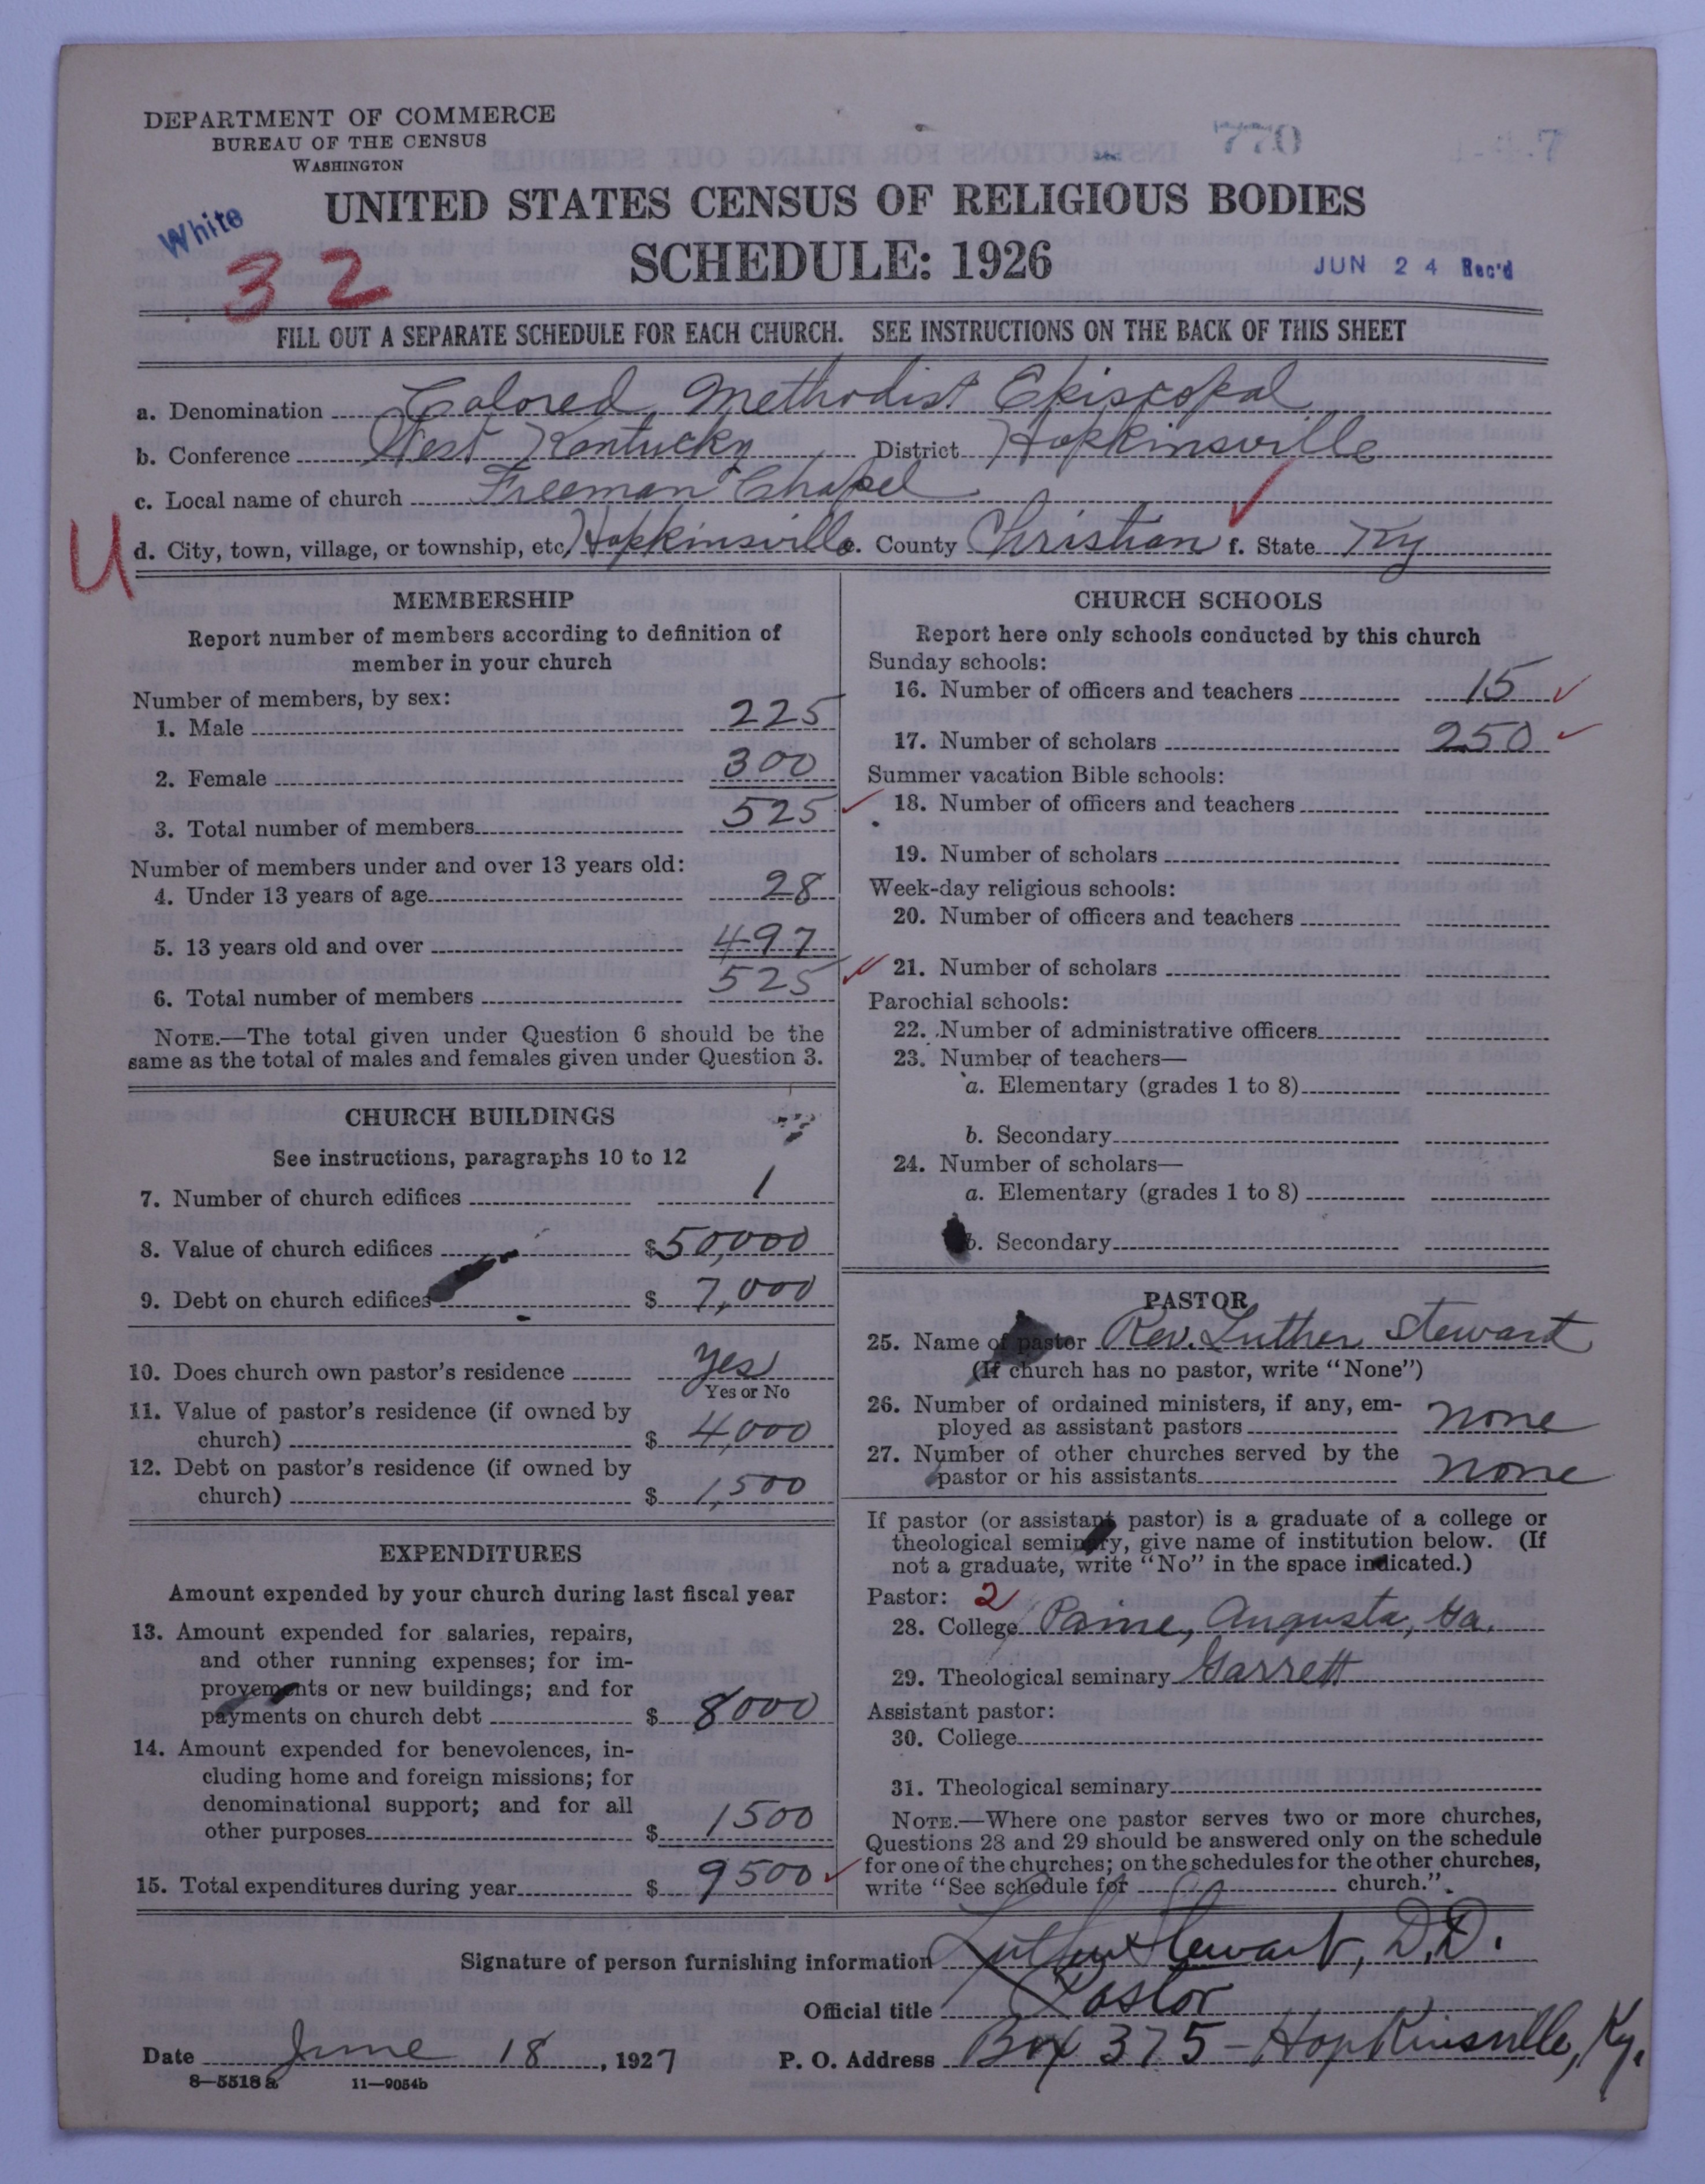 DEPARTMENT OF COMMERCE
BUREAU OF THE CENSUS
WASHINGTON
770
White
32
UNITED STATES CENSUS OF RELIGIOUS BODIES
SCHEDULE: 1926
JUN 24 Rec'd
FILL OUT A SEPARATE SCHEDULE FOR EACH CHURCH. SEE INSTRUCTIONS ON THE BACK OF THIS SHEET
a. Denomination Colored Methodist Episcopal
b. Conference West Kentucky District Hopkinsville
c. Local name of church Freeman Chapel
U
d. City, town, village, or township, etc. Hopkinsville e. County Christian f. State Ky
MEMBERSHIP
Report number of members according to definition of
member in your church
Number of members, by sex:
1. Male 225
2. Female 300
3. Total number of members 525
Number of members under and over 13 years old:
4. Under 13 years of age 28
5. 13 years old and over 497
6. Total number of members 525
NOTE.—The total given under Question 6 should be the
same as the total of males and females given under Question 3.
CHURCH BUILDINGS
See instructions, paragraphs 10 to 12
7. Number of church edifices 1
8. Value of church edifices $50,000
9. Debt on church edifices $ 7,000
10. Does church own pastor's residence yes
Yes or No
11. Value of pastor's residence (if owned by
church) $ 4,000
12. Debt on pastor's residence (if owned by
church) $ 1,500
EXPENDITURES
Amount expended by your church during last fiscal year
13. Amount expended for salaries, repairs,
and other running expenses; for im-
provements or new buildings; and for
payments on church debt $ 8000
14. Amount expended for benevolences, in-
cluding home and foreign missions; for
denominational support; and for all
other purposes $ 1500
15. Total expenditures during year $ 9500
CHURCH SCHOOLS
Report here only schools conducted by this church
Sunday schools:
16. Number of officers and teachers 15
17. Number of scholars 250
Summer vacation Bible schools:
18. Number of officers and teachers
19. Number of scholars
Week-day religious schools:
20. Number of officers and teachers
21. Number of scholars
Parochial schools:
22. Number of administrative officers
23. Number of teachers—
a. Elementary (grades 1 to 8)
b. Secondary
24. Number of scholars—
a. Elementary (grades 1 to 8)
b. Secondary
PASTOR
25. Name of pastor Rev. Luther Stewart
(If church has no pastor, write "None")
26. Number of ordained ministers, if any, em-
ployed as assistant pastors none
27. Number of other churches served by the
pastor or his assistants none
If pastor (or assistant pastor) is a graduate of a college or
theological seminary, give name of institution below. (If
not a graduate, write "No" in the space indicated.)
Pastor: 2
28. College Paine, Augusta, Ga.
29. Theological seminary Garrett
Assistant pastor:
30. College
31. Theological seminary
NOTE.—Where one pastor serves two or more churches,
Questions 28 and 29 should be answered only on the schedule
for one of the churches; on the schedules for the other churches,
write "See schedule for church."
Signature of person furnishing information Luther Stewart, D.D.
Official title Pastor
Date June 18, 1927 P. O. Address Box 375 - Hopkinsville, Ky.
8—5518a 11—9054b